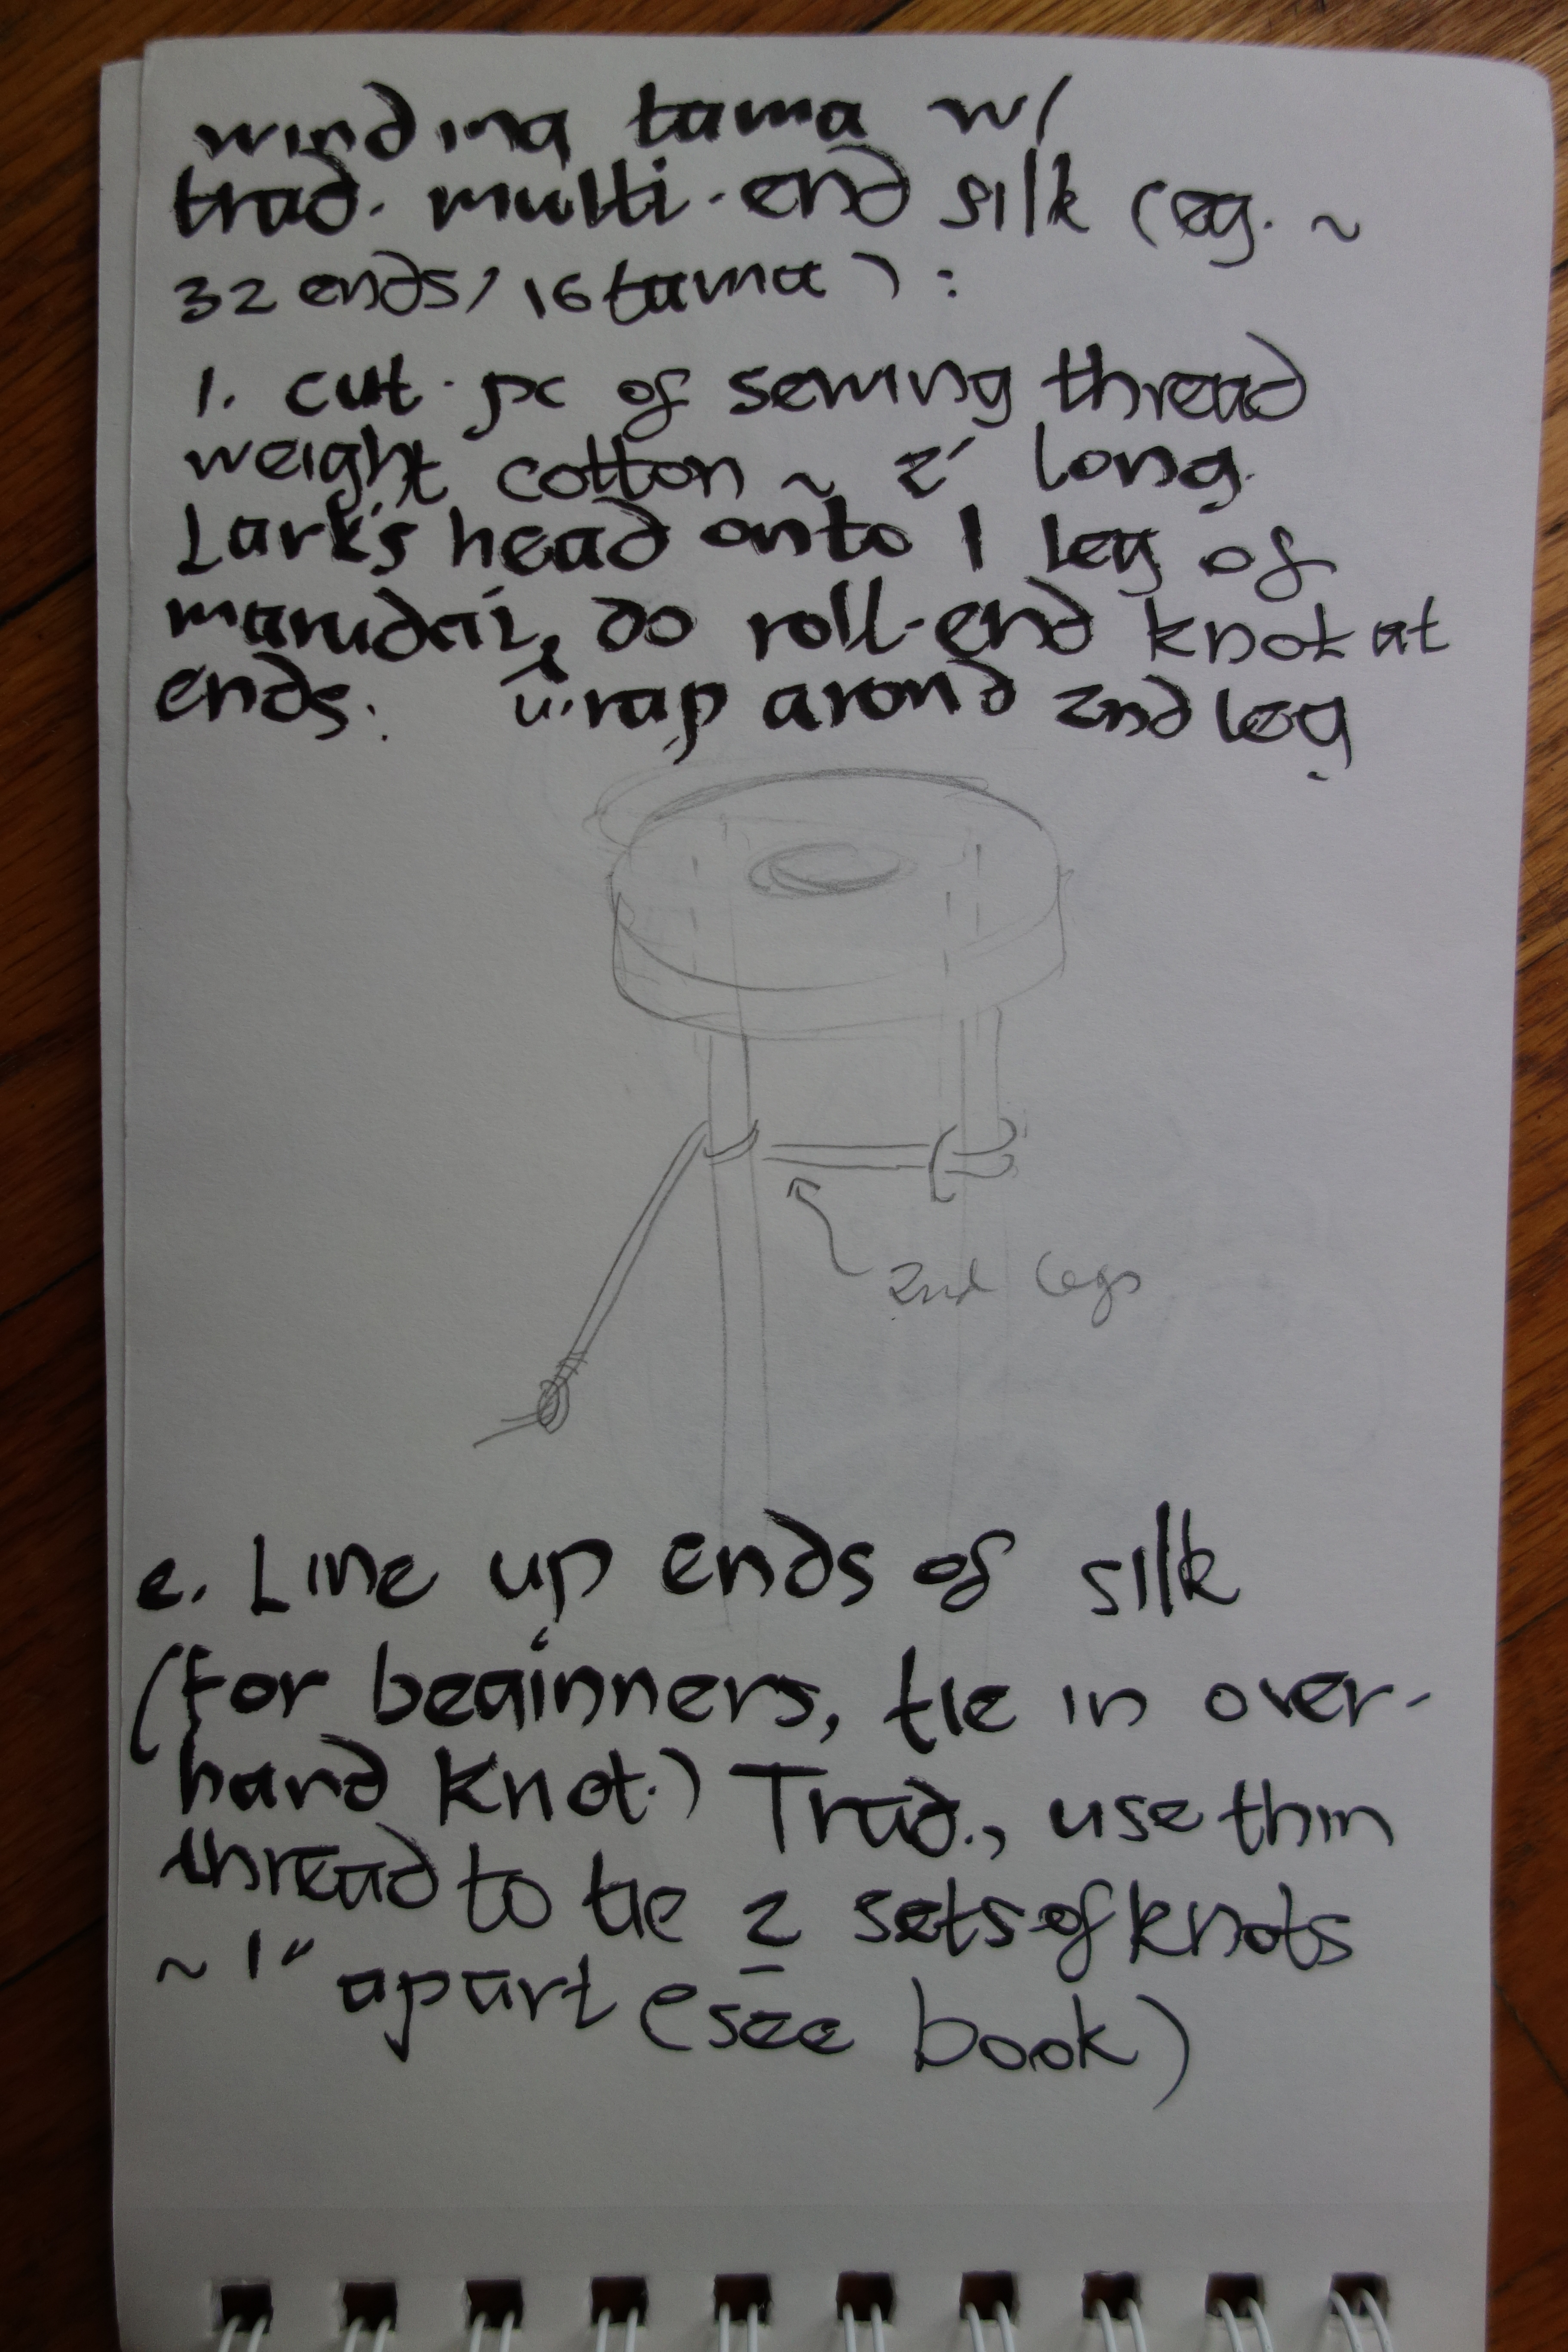 winding tama w/
trad. multi-end silk (eg. ~
32 ends/16 tama):
1. cut pc of sewing thread
weight cotton ~ 2' long.
Lark's head onto 1 leg of
marudai, do roll-end knot at
ends. & wrap arond 2nd leg
2nd legs
2. Line up ends of silk
(for beginners, tie in over-
hand knot.) Trad., use thin
thread to tie 2 sets of knots
~ 1" apart (see book)